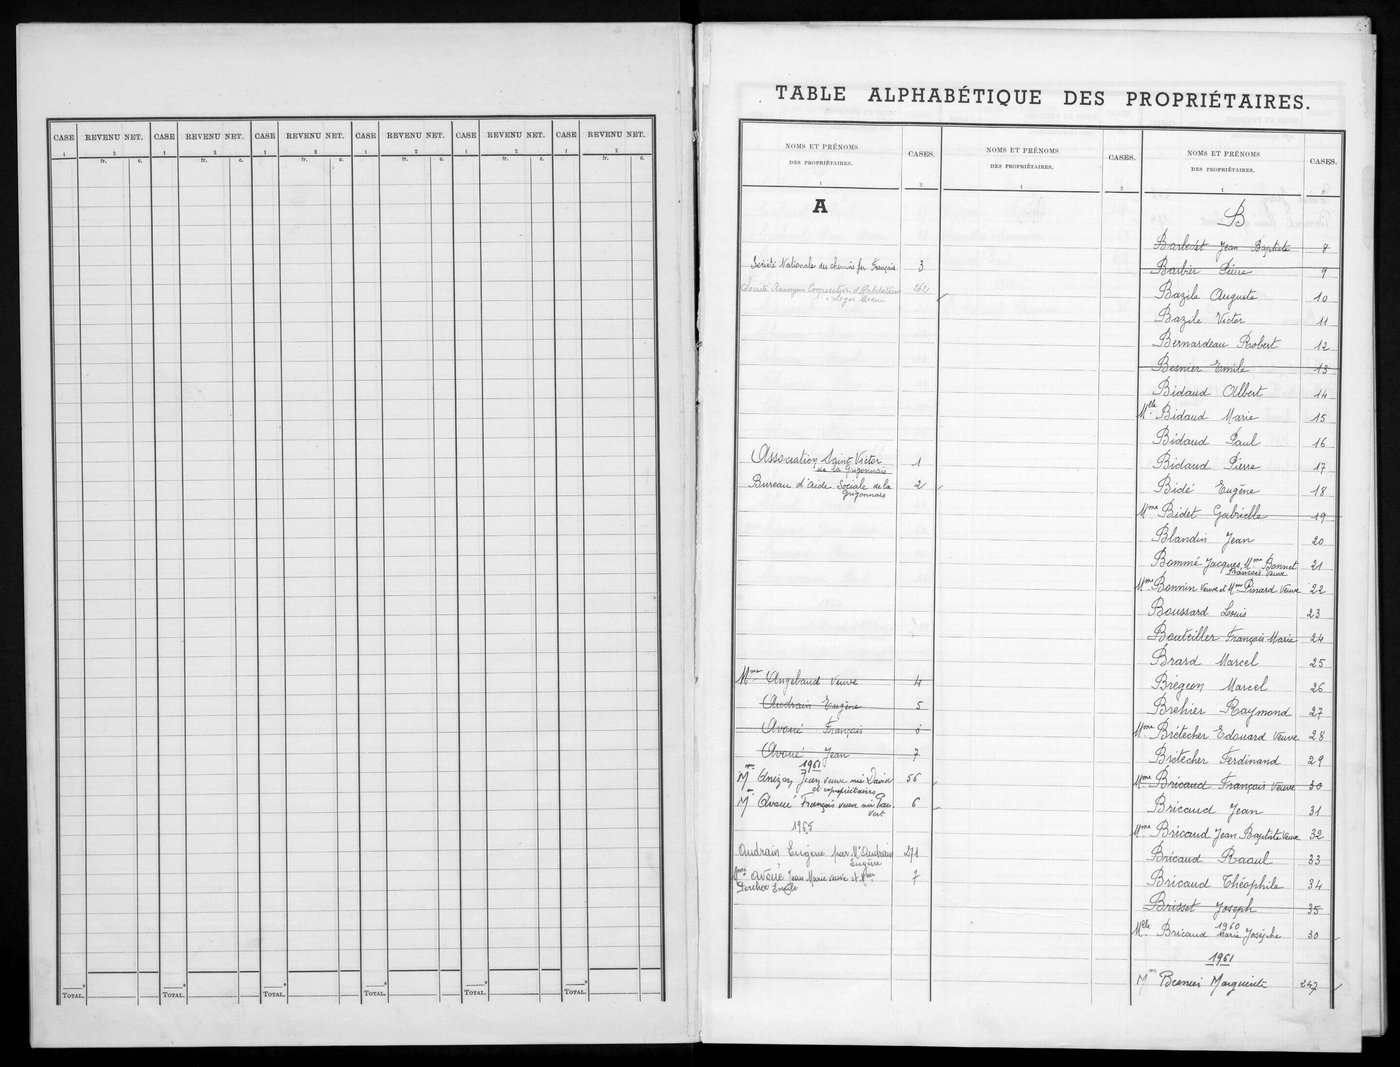 CASE REVENU NET. CASE REVENU NET. CASE REVENU NET. CASE REVENU NET. CASE REVENU NET. CASE REVENU NET.
1 2 1 2 1 2 1 2 1 2 1 2
fr. c. fr. c. fr. c. fr. c. fr. c. fr. c.
TOTAL. TOTAL. TOTAL. TOTAL. TOTAL. TOTAL.
TABLE ALPHABÉTIQUE DES PROPRIÉTAIRES.
NOMS ET PRÉNOMS
DES PROPRIÉTAIRES.
CASES.
1 2
A
Société Nationale des chemins fer Français 3
Société Anonyme Coopérative d'Habitations 262
à Loyer
Association Saint Victor 1
de la Grigonnais
Bureau d'aide Sociale de la 2
Grigonnais
Mme Angebaud Veuve 4
Audrain Eugène 5
Avoué François 6
Avoué Jean 7
1961
Mme Anizon Jean veuve née David 56
et copropriétaires
Mme Avoué François veuve née Pau- 6
vert
1965
Audrain Eugène par Mr Audrain 271
Eugène
Mme Avoué Jean Marie veuve et Mme 7
NOMS ET PRÉNOMS
DES PROPRIÉTAIRES.
CASES.
1 2
NOMS ET PRÉNOMS
DES PROPRIÉTAIRES.
CASES.
1 2
B
Barbedet Jean Baptiste 8
Barbier Pierre 9
Bazile Auguste 10
Bazile Victor 11
Bernardeau Robert 12
Besnier Emile 13
Bidaud Albert 14
Mlle Bidaud Marie 15
Bidaud Paul 16
Bidaud Pierre 17
Bidé Eugène 18
Mme Bidet Gabrielle 19
Blandin Jean 20
Bommé Jacques, Mme Bonnet 21
François Veuve
Mme Bonnin Veuve et Mme Pinard Veuve 22
Boussard Louis 23
Bouteiller François Marie 24
Brard Marcel 25
Brégeon Marcel 26
Brehier Raymond 27
Mme Brétecher Edouard Veuve 28
Brétecher Ferdinand 29
Mme Bricaud François Veuve 30
Bricaud Jean 31
Mme Bricaud Jean Baptiste Veuve 32
Bricaud Raoul 33
Bricaud Théophile 34
Brisset Joseph 35
1960
Mlle Bricaud Marie Josèphe 30
1961
Mme Besnier Marguerite 247